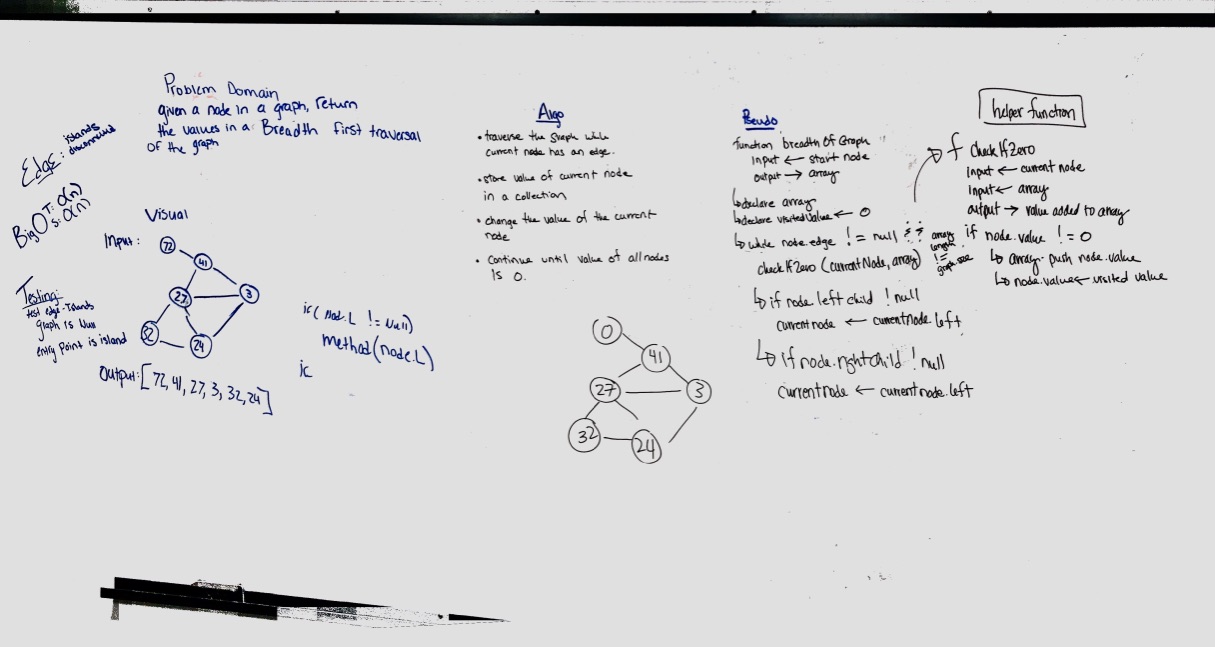 Problem Domain
given a node in a graph, return
the values in a Breadth first traversal
of the graph
Edge: islands
disconnected
Big O T: O(n)
S: O(n)
Visual
Input:
72
41
27
3
32
24
Testing:
test edge - islands
graph is Null
entry point is island
Output: [72, 41, 27, 3, 32, 24]
if (Node.L != Null)
method(node.L)
Algo
• traverse the graph while
current node has an edge.
• store value of current node
in a collection
• change the value of the current
node
• Continue until value of all nodes
is 0.
0
41
27
3
32
24
Pseudo
function breadth Of Graph
input ← start node
output → array
↳ declare array
↳ declare visited value ← 0
↳ while node.edge != null && array length != graph size
check If Zero (currentNode, array)
↳ if node.left child ! null
current node ← currentnode.left
↳ if node.rightchild ! null
currentnode ← currentnode.left
helper function
→ f check If Zero
input ← current node
input ← array
output → value added to array
if node.value != 0
↳ array.push node.value
↳ node.value ← visited value